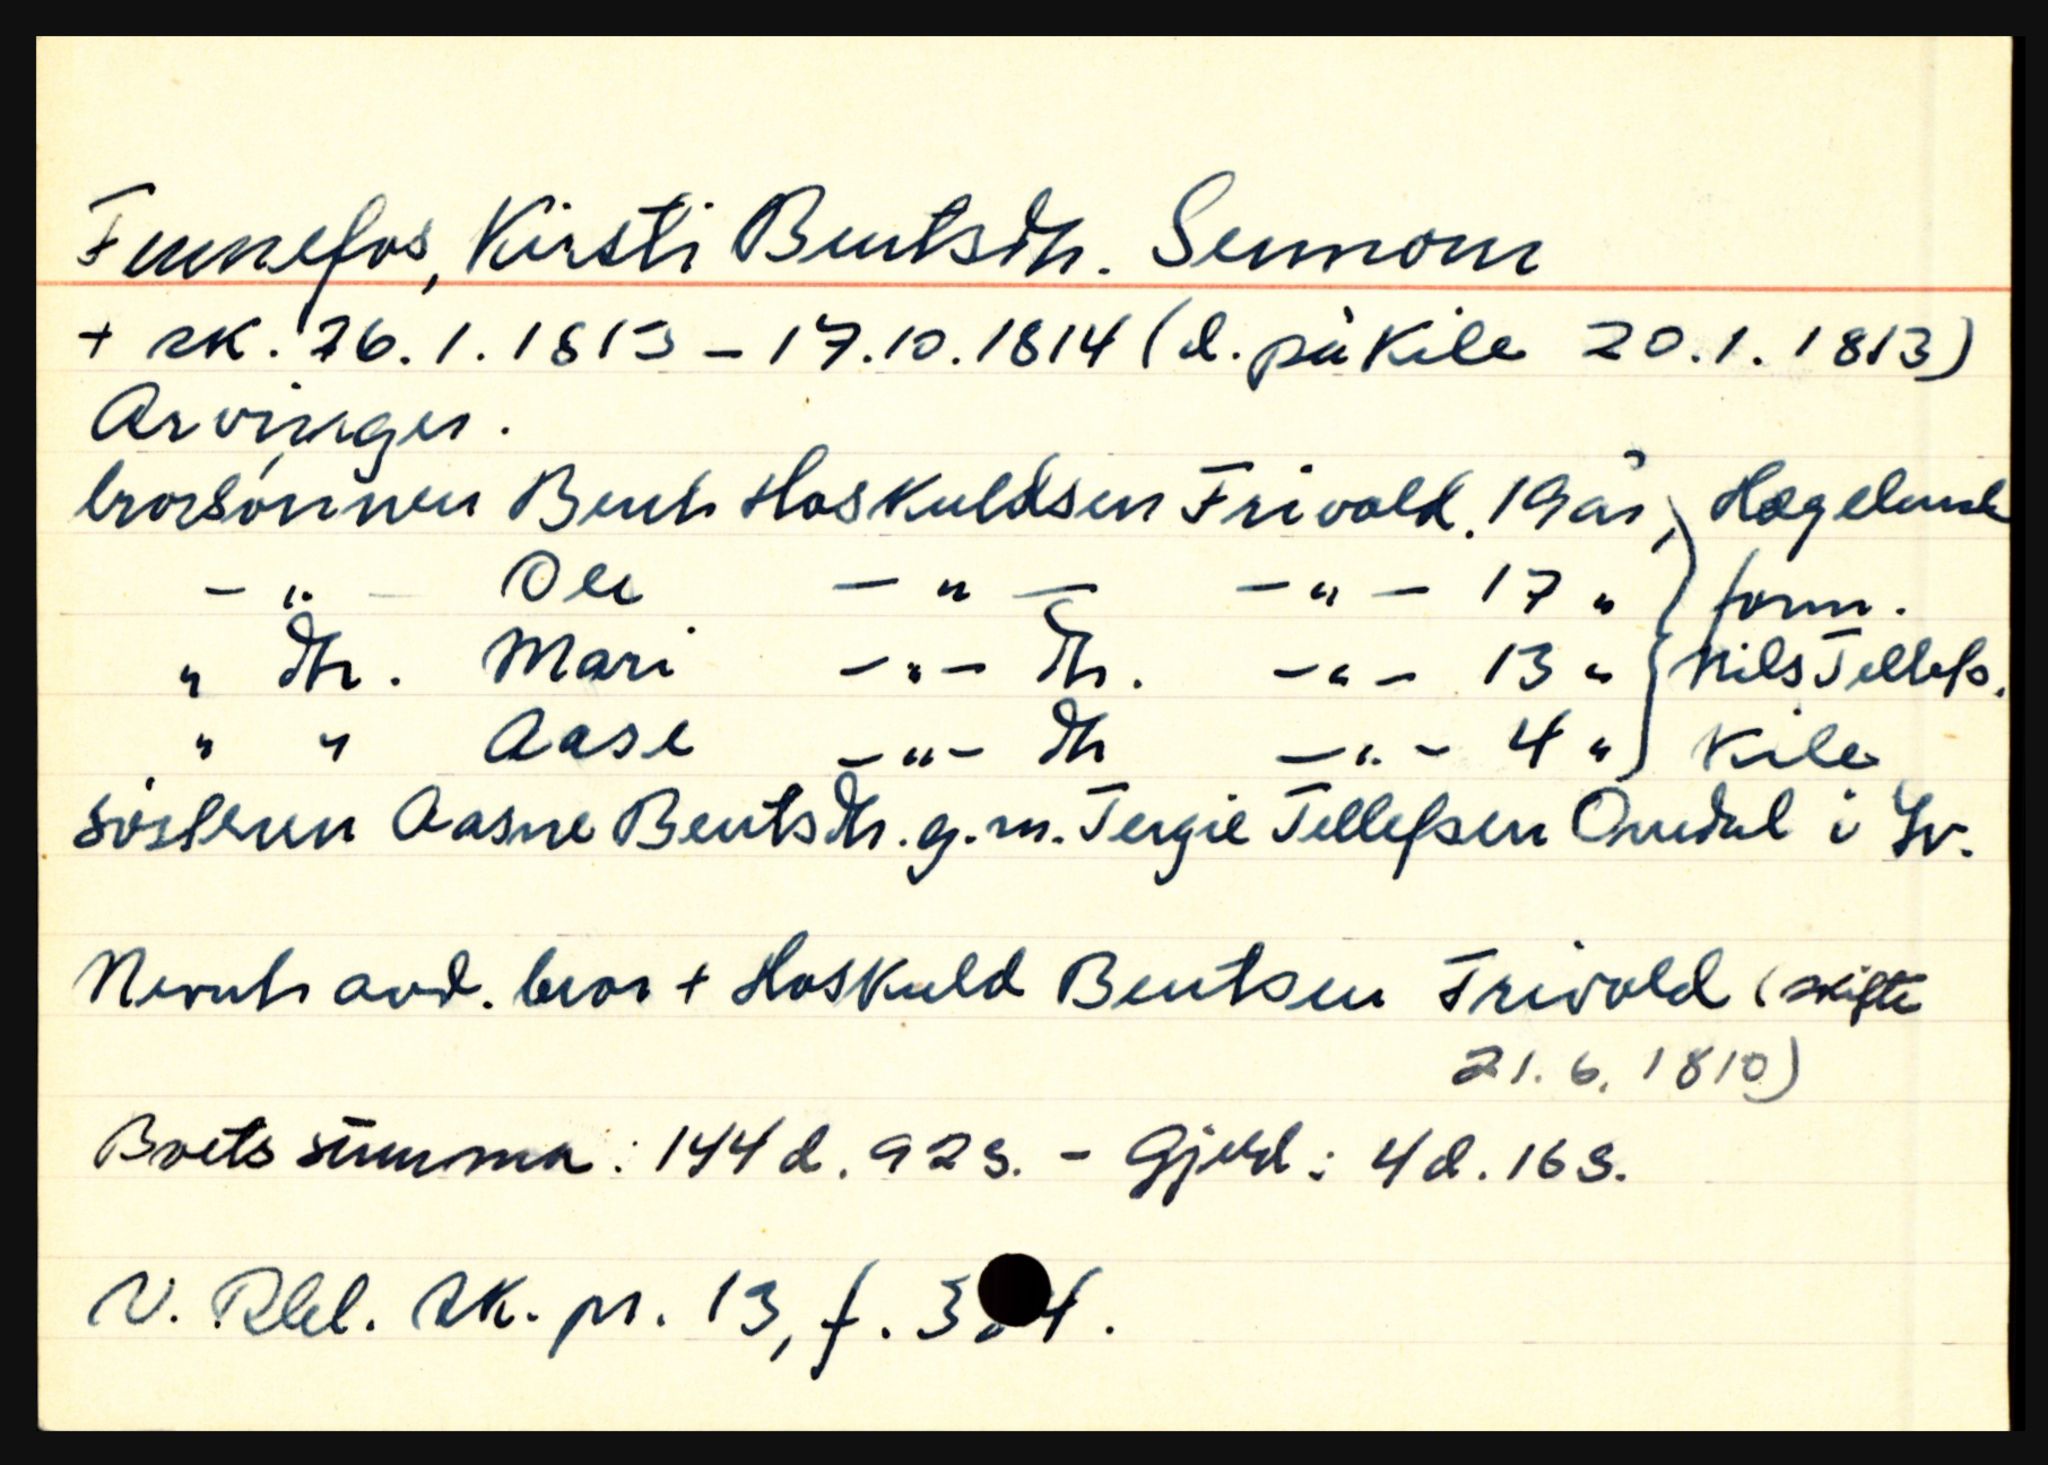 Funnefos, Kirsti Bentsdtr. Senmom
+ sk. 26.1.1813 – 17.10.1814 (d. på Kile 20.1.1813)
Arvinger.
brorsönnen Bent Hoskuldsen Trivold. 19 år, Hægeland
– " – Ole – " – – " – 17 " form.
" dtr. Mari – " – dtr. – " – 13 " Nils Tellefs.
" " Aase – " – dtr – " – 4 " Kile
sösteren Aasne Bentsdtr. g.m. Tergie Tellefsen Omdal i Yv.
Nevnt avd. bror + Hoskuld Bentsen Trivold (skifte
21.6.1810)
Boets summa: 144 d. 92 s. – Gjeld: 4 d. 16 s.
V. Rbl. sk. pr. 13, f.